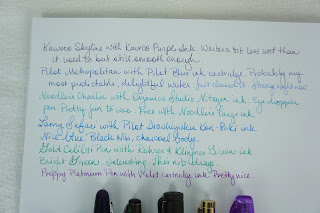 Kaweco Skyline with Kaweco Purple ink. Writes bit less wet than
it used to but still smooth enough.
Pilot Metropolitan with Pilot Blue ink cartridge. Probably my
most predictable, delightful writer. Just dannable. strong right now
Noodlers Charlie with Organics Studio Nitrogen ink. Eye dropper
pen Pretty fun to use. Free with Noodlers large ink.
Lamy Safari with Pilot Iroshizuku Kon-Peki ink.
Nice blue. Black Nib, charcoal body.
Gold Calligri Pen with Rohrer & Klingner Green ink
Bright Green. Interesting. This nib drags.
Preppy Platinum Pen with Violet cartridge ink. Pretty nice.